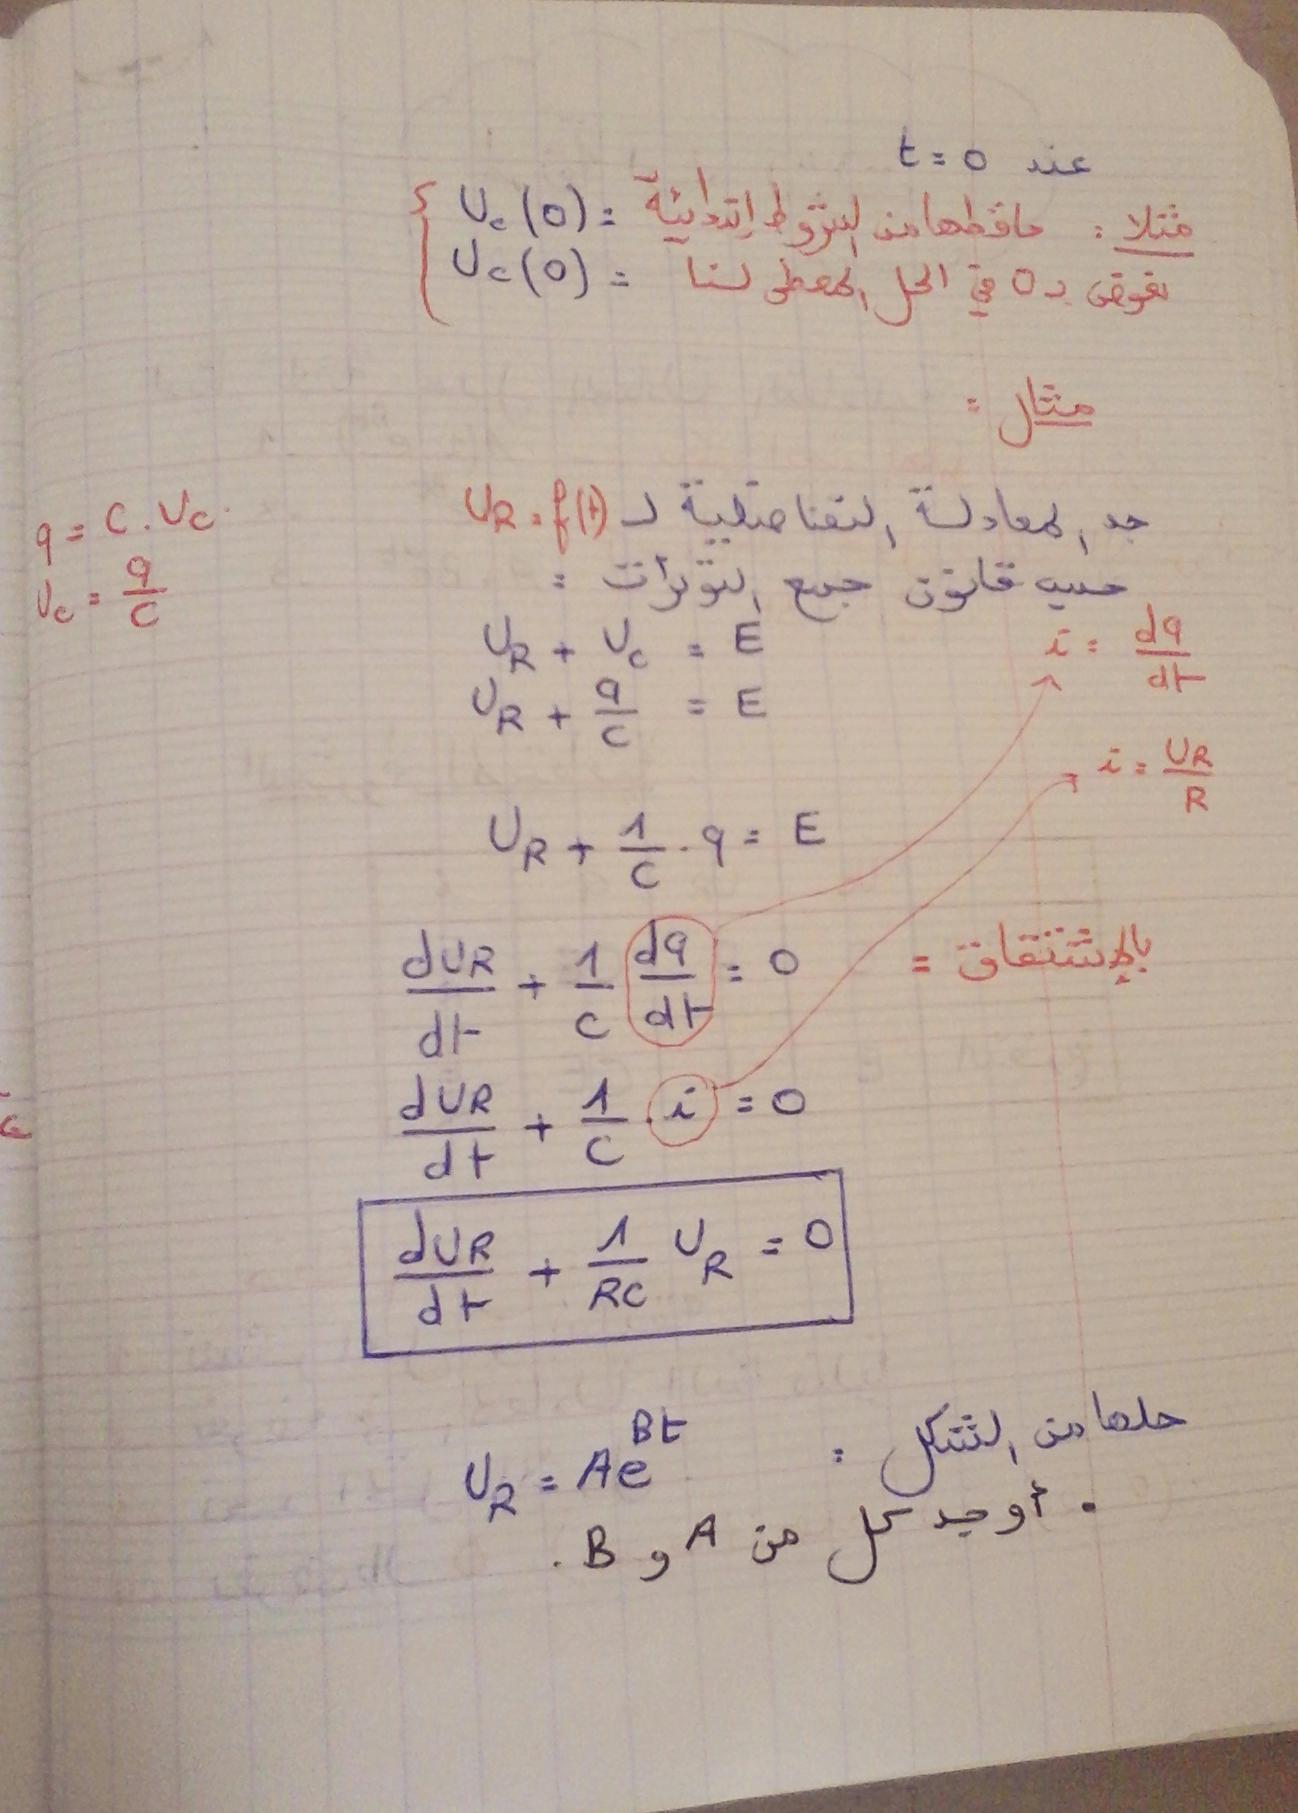 عند t = 0
مثلا : حافظها من الشروط إبتدائية = Uc(0)
نعوض بـ 0 في الحل المعطى لنا = Uc(0)
مثال :
جد المعادلة التفاضلية لـ UR = f(t)
q = C . Uc.
Uc = q/C
حسب قانون جمع التوترات :
UR + Uc = E
i = dq/dt
UR + q/C = E
i = UR/R
UR + 1/C . q = E
بالإشتقاق = dUR/dt + 1/C dq/dt = 0
dUR/dt + 1/C . i = 0
dUR/dt + 1/RC UR = 0
حلها من الشكل : UR = Ae^Bt
. أوجد كل من A و B .